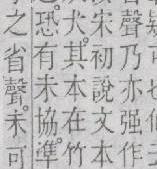 聲乃亦强作
宋初說文本
犬其本在竹
恐有未協準
之省聲未可